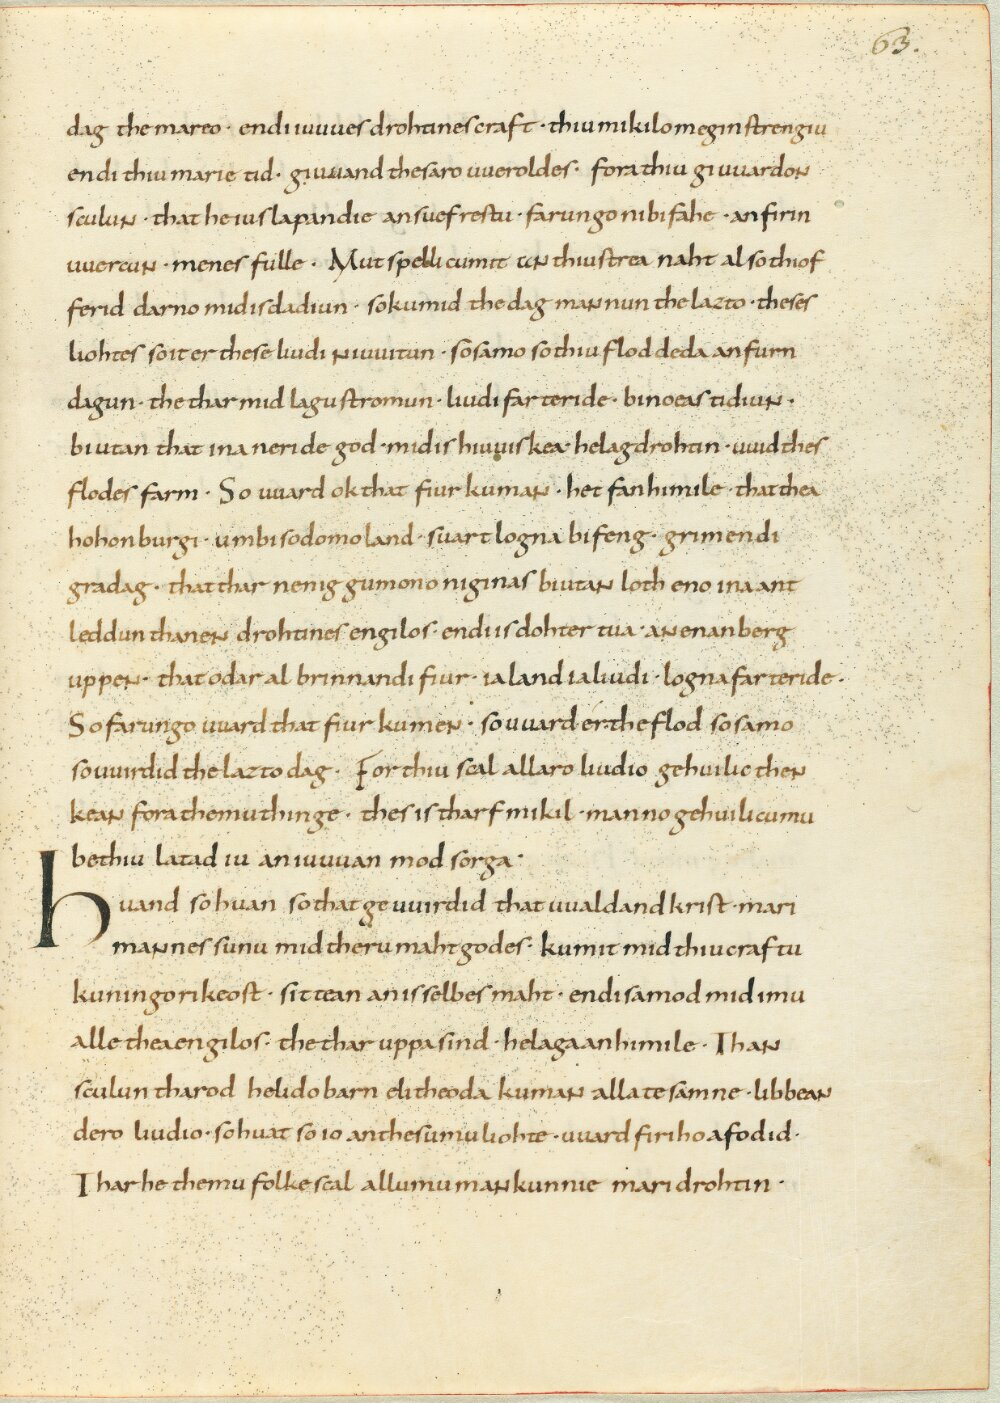 63.
dag the mareo · endi iuuues drohtines craft · thiu mikilo meginstrengiu
endi thiu marie tid · giuuand thesaro uueroldes · fora thiu gi uuardon
sculun · that he iu slapandie an suefrestu · farungo ni bifahe · an firin
uuercun · menes fulle · Mutspelli cumit an thiustrea naht al so thiof
ferid darno mid is dadiun · so kumid the dag mannun the lazto · theses
liohtes so it er these liudi ni uuitun · so samo so thiu flod deda an furn
dagun · the thar mid lagustromun · liudi farteride · bi noeas tidiun ·
biutan that ina neride god · mid is hiuuiskea helag drohtin · uuid thes
flodes farm · So uuard ok that fiur kuman · het fan himile · that thea
hohon burgi · umbi sodomo land · suart logna bifeng · grim endi
gradag · that thar nenig gumono ni ginas biutan loth eno ina ant
leddun thanen drohtines engilos · endi is dohter tua · an enan berg
uppen · that odar al brinnandi fiur · ia land ia liudi · logna farteride ·
So farungo uuard that fiur kumen · so uuard er the flod so samo
so uuirdid the lazto dag · For thiu scal allaro liudio gehuilic then
kean fora themu thinge · thes is tharf mikil · manno gehuilicumu
bethiu latad iu an iuuuan mod sorga ·
Huand so huan so that geuuirdid that uualdand krist · mari
mannes sunu mid theru maht godes · kumit mid thiu craftu
kuningo rikeost · sittean an is selbes maht · endi samod mid imu
alle thea engilos · the thar uppa sind · helaga an himile · Than
sculun tharod helido barn elitheoda kuman alla tesamne · libbean
dero liudio · so huat so io an thesumu liohte · uuard firiho afodid ·
Thar he themu folke scal allumu mankunnie mari drohtin ·